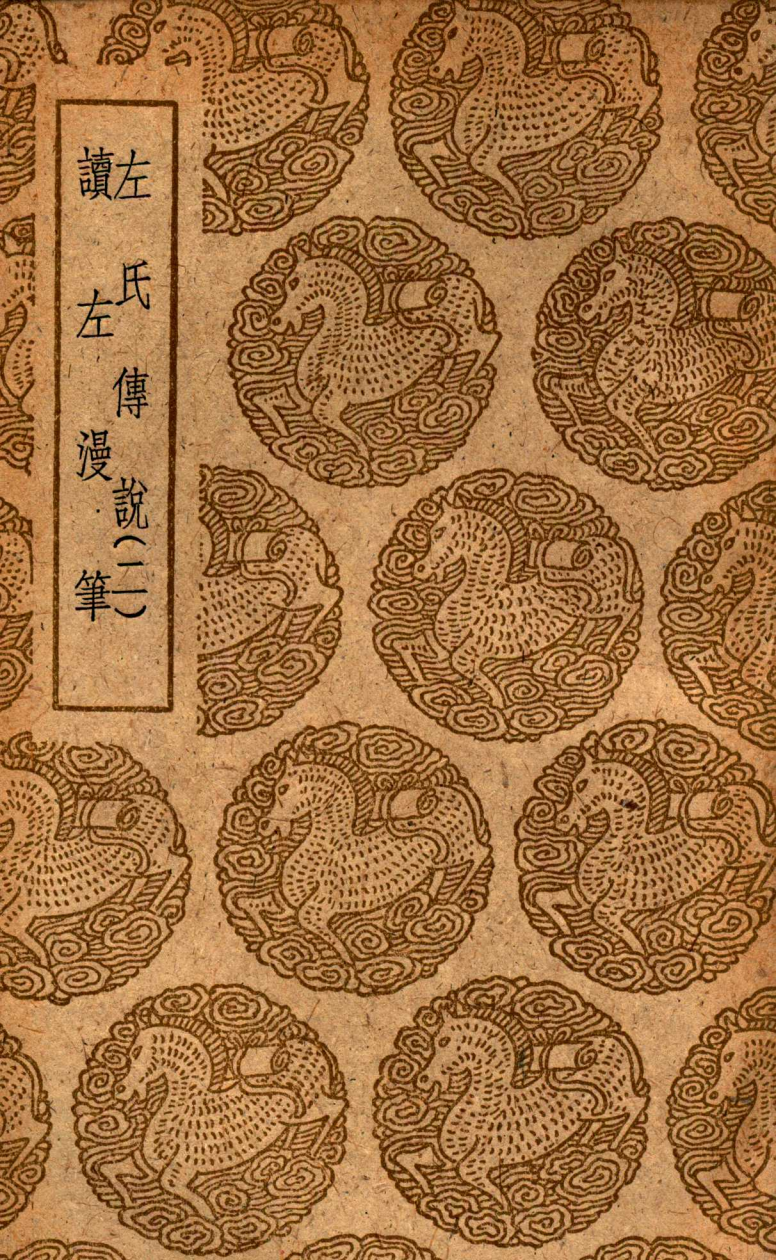 左氏傳說(二)
讀左漫筆